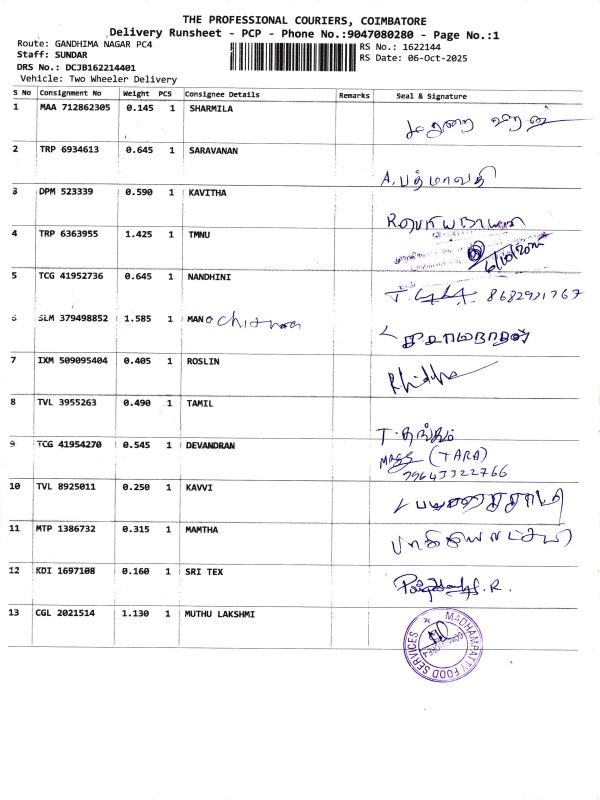 THE PROFESSIONAL COURIERS, COIMBATORE
Delivery Runsheet - PCP - Phone No.:9047080280 - Page No.:1
Route: GANDHIMA NAGAR PC4
RS No.: 1622144
Staff: SUNDAR
RS Date: 06-Oct-2025
DRS No.: DCJB162214401
Vehicle: Two Wheeler Delivery
S No Consignment No Weight PCS Consignee Details Remarks Seal & Signature
1 MAA 712862305 0.145 1 SHARMILA
2 TRP 6934613 0.645 1 SARAVANAN
A. பத்மாவதி
3 DPM 523339 0.590 1 KAVITHA
4 TRP 6363955 1.425 1 TMNU
6/10/2025
5 TCG 41952736 0.645 1 NANDHINI
8682931767
6 SLM 379498852 1.585 1 MANO
7 IXM 509095404 0.405 1 ROSLIN
8 TVL 3955263 0.490 1 TAMIL
T. தங்கம்
9 TCG 41954270 0.545 1 DEVANDRAN
(TARA)
79643322766
10 TVL 8925011 0.250 1 KAVVI
11 MTP 1386732 0.315 1 MAMTHA
12 KDI 1697108 0.160 1 SRI TEX
13 CGL 2021514 1.130 1 MUTHU LAKSHMI
MADHAMPATTY FOOD SERVICES